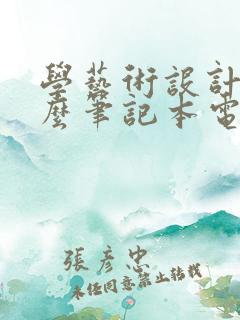 學藝術設計
麼筆記本電
張彥忠
未經同意禁止轉載